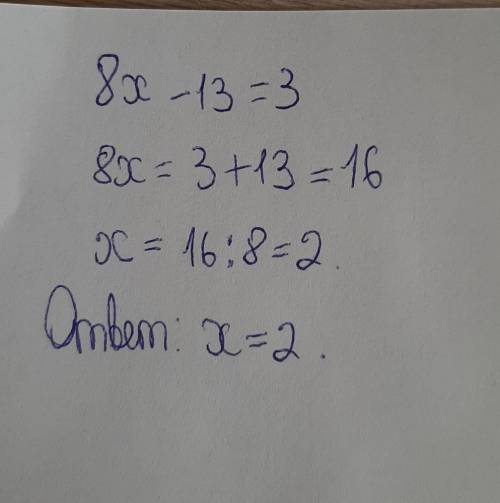 8x - 13 = 3
8x = 3 + 13 = 16
x = 16 : 8 = 2.
Ответ: x = 2.